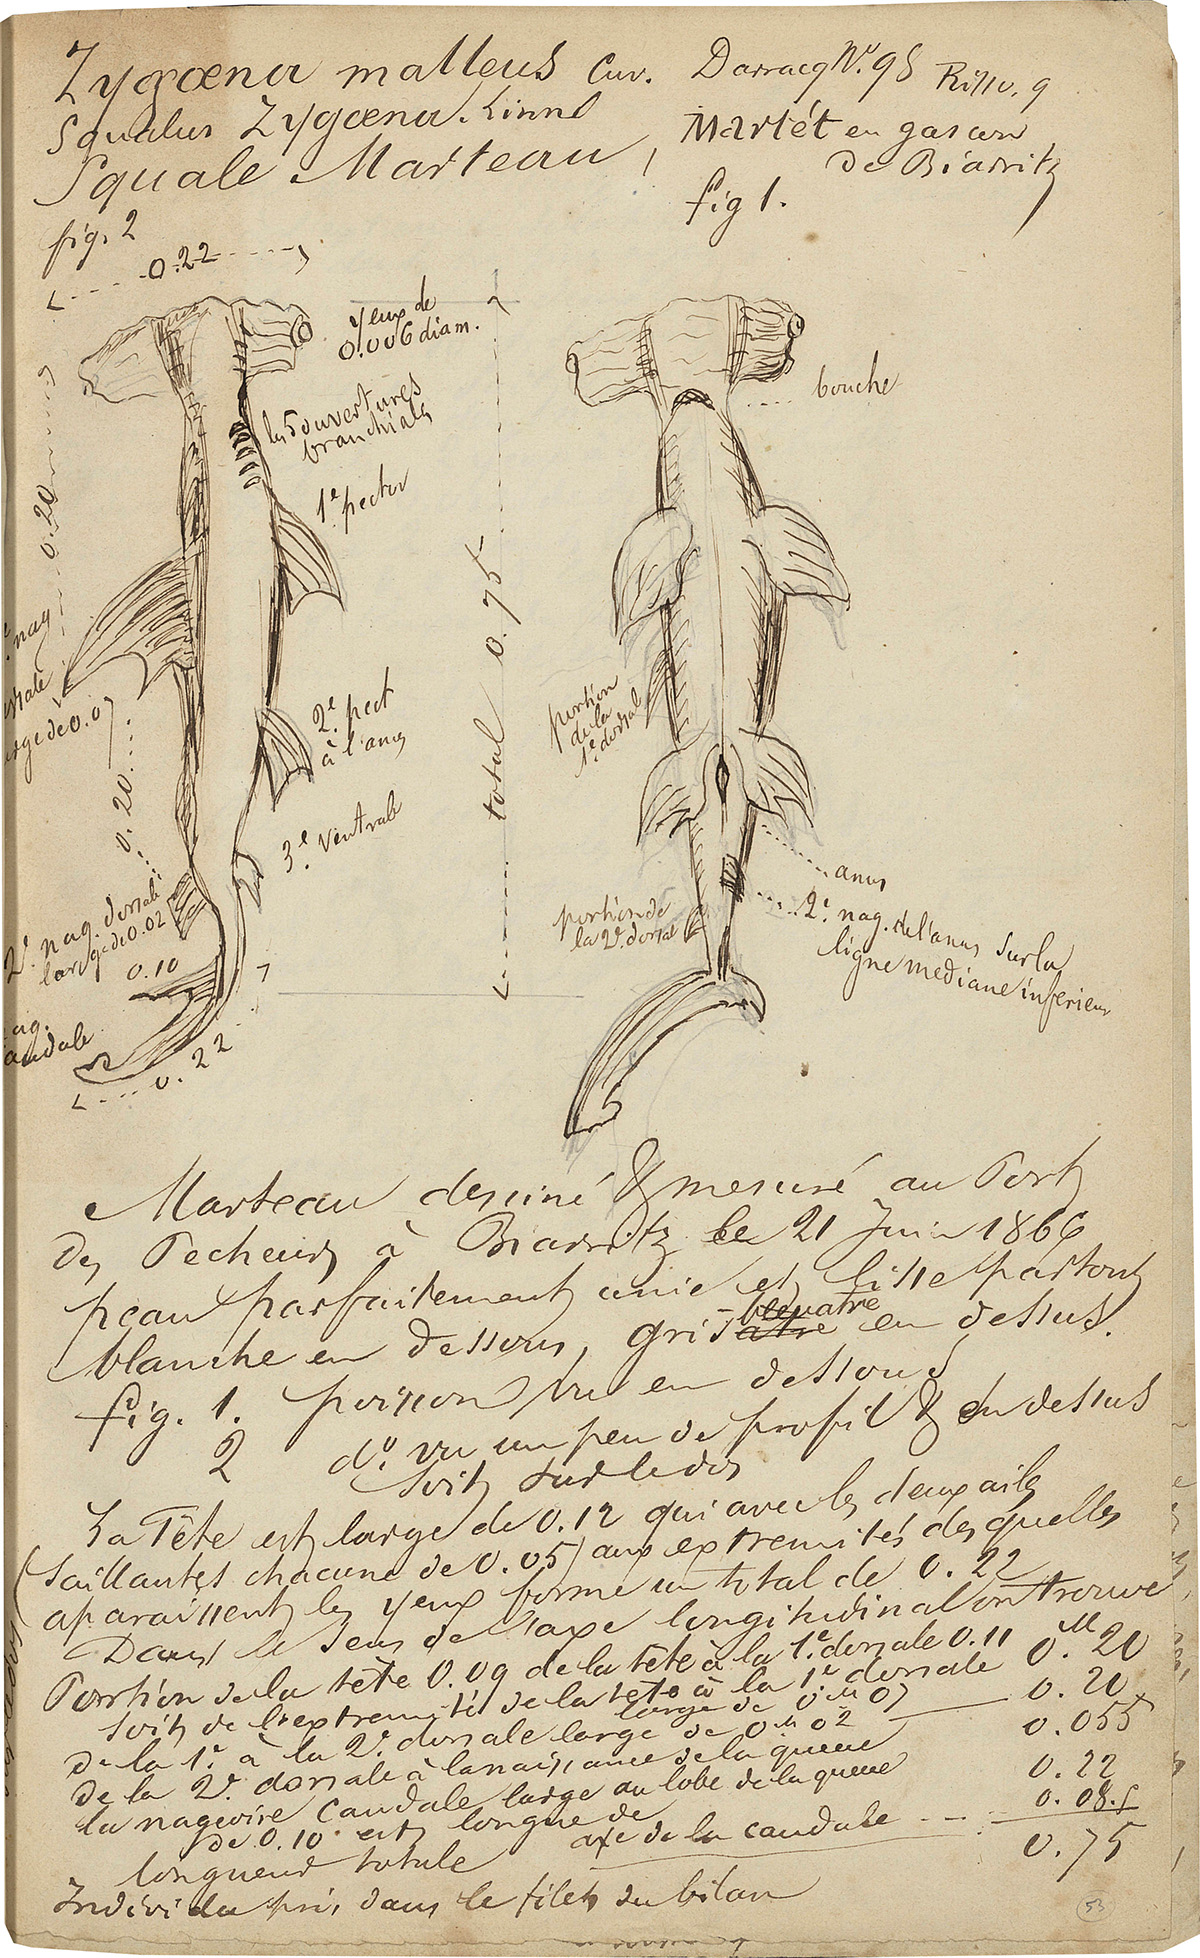 Zygœna malleus Cuv.
Squalus Zygœna. Linné
Squale Marteau,
Darracq Nº. 98 Risso. 9
Martét en gascon
de Biarritz
fig 1.
fig. 2
0.22
yeux de
0.006 diam.
les 5 ouvertures
branchiales
1e. pector
0.20
nag
large de 0.07
0.20
2e. pect
à l'anus
3e. Ventrale
2e. nag. dorsale
large de 0.02
0.10
nag.
caudale
0.22
total 0.75
bouche
portion
de la
1e. dorsal
portion de
la 2e. dorsal
anus
2e. nag. de l'anus sur la
ligne mediane inferieur
Marteau dessiné & mesuré au Port
des Pecheurs à Biarritz le 21 Juin 1866
peau parfaitement unie et lisse partout
blanche en dessous, gris-atre bleuatre en dessus.
fig. 1. poisson vu en dessous
2 do. vu un peu de profil & en dessus
soit sur le dos
La Tête est large de 0.12 qui avec les deux ailes
(saillantes chacune de 0.05) aux extremités des quelles
aparaissent les yeux forme un total de 0.22
Dans le sens de l'axe longitudinal on trouve
Portion de la tête 0.09 de la tête à la 1e. dorsale 0.11
soit de l'extremité de la tête à la 1e dorsale 0.M 20
large de 0.M 07
de la 1e. à la 2e. dorsale large de 0M 02 0.20
de la 2e. dorsale à la naissance de la queue 0.055
la nageoire caudale large au lobe de la queue
de 0.10 est longue de 0.22
axe de la caudale 0.08.5
longueur totale 0.75
Individu pris dans le filet du bilan
53